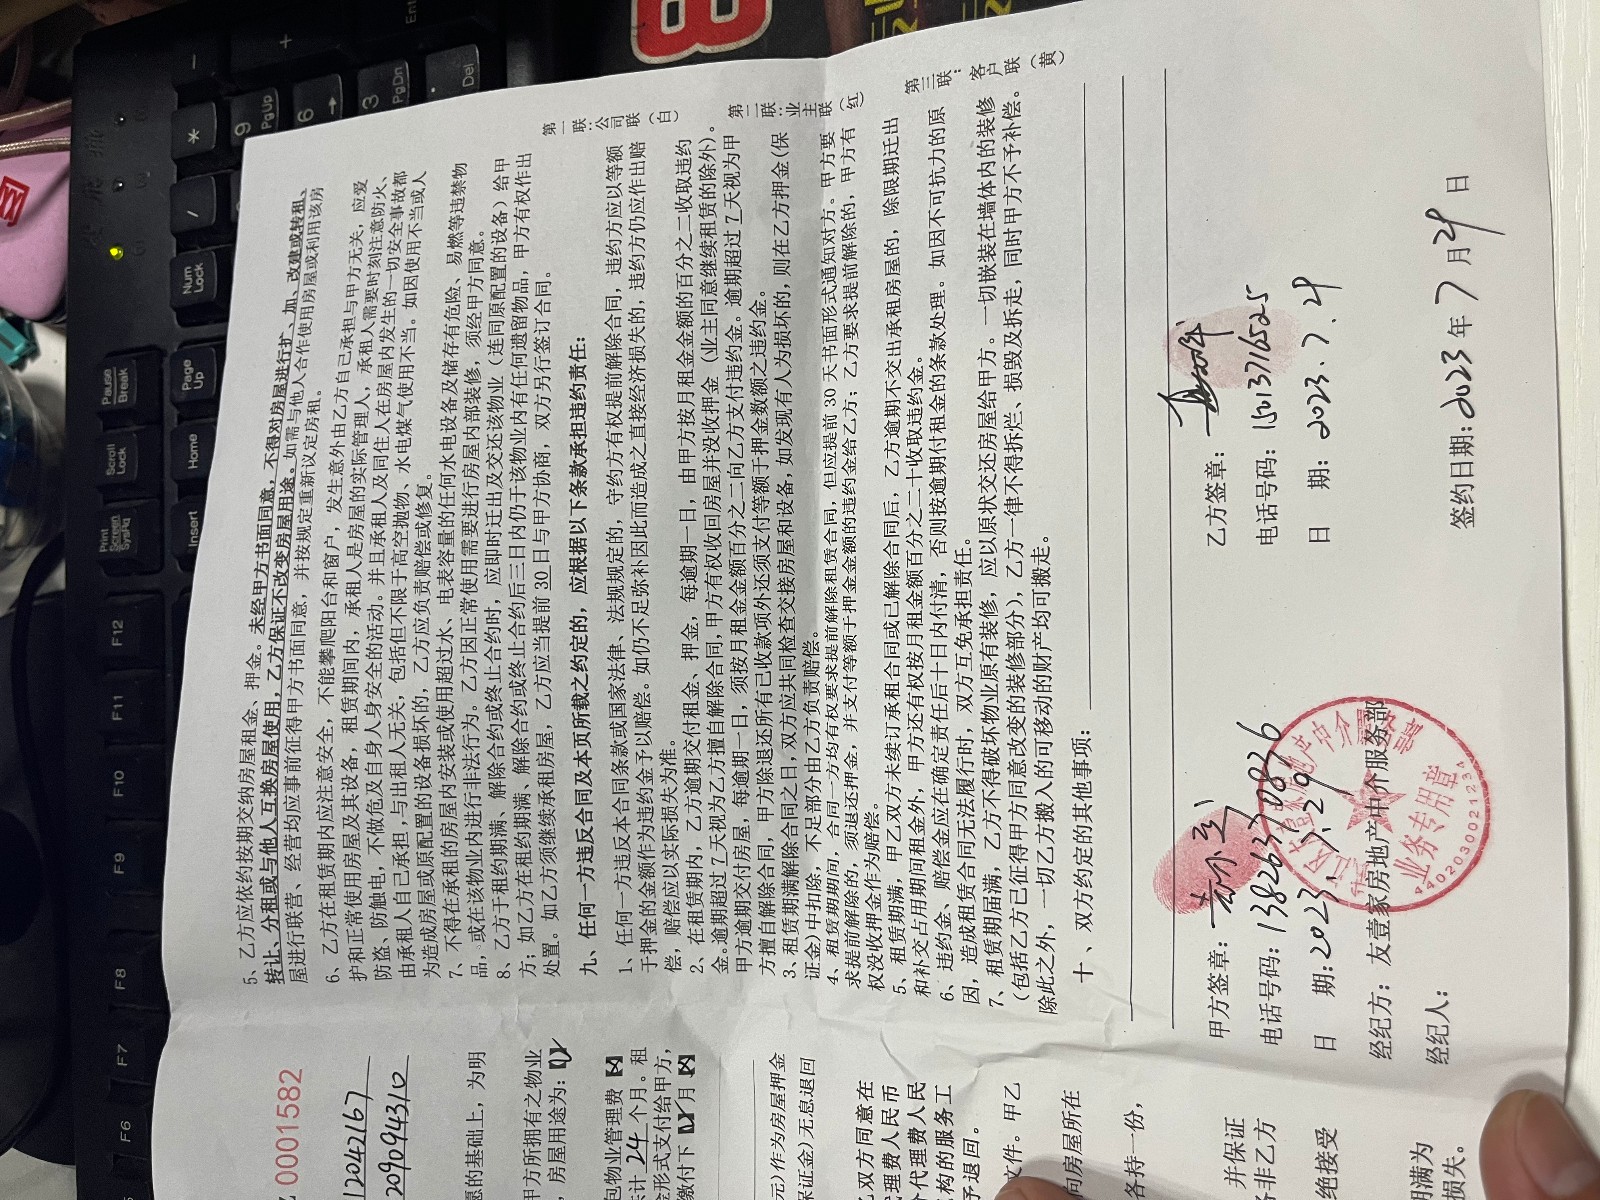 5、乙方应依约按期交纳房屋租金、押金。未经甲方书面同意，不得对房屋进行扩、加、改建或转租、
转让、分租或与他人互换房屋使用，乙方保证不改变房屋用途。如需与他人合作使用房屋或利用该房
屋进行联营、经营均应事前征得甲方书面同意，并按规定重新议定房租。
6、乙方在租赁期内应注意安全，不能攀爬阳台和窗户，发生意外由乙方自己承担与甲方无关，应爱
护和正常使用房屋及其设备，租赁期间内，承租人是房屋的实际管理人，承租人需要时刻注意防火、
防盗、防触电，不做危及自身人身安全的活动。并且承租人及同住人在房屋内发生的一切安全事故都
由承租人自己承担，与出租人无关，包括但不限于高空抛物、水电煤气使用不当。如因使用不当或人
为造成房屋或原配置的设备损坏的，乙方应负责赔偿或修复。
7、不得在承租的房屋内安装或使用超过水、电表容量的任何水电设备及储存有危险、易燃等违禁物
品，或在该物业内进行非法行为。乙方因正常使用需要进行房屋内部装修，须经甲方同意。
8、乙方于租约期满、解除合约或终止合约时，应即时迁出及交还该物业（连同原配置的设备）给甲
方；如乙方在租约期满、解除合约或终止合约后三日内仍于该物业内有任何遗留物品，甲方有权作出
处置。如乙方须继续承租房屋，乙方应当提前 30 日与甲方协商，双方另行签订合同。
九、任何一方违反合同及本页所载之约定的，应根据以下条款承担违约责任：
1、任何一方违反本合同条款或国家法律、法规规定的，守约方有权提前解除合同，违约方应以等额
于押金的金额作为违约金予以赔偿。如仍不足弥补因此而造成之直接经济损失的，违约方仍应作出赔
偿，赔偿应以实际损失为准。
2、在租赁期内，乙方逾期交付租金、押金，每逾期一日，由甲方按月租金金额的百分之二收取违约
金。逾期超过 7 天视为乙方擅自解除合同，甲方有权收回房屋并没收押金（业主同意继续租赁的除外）。
甲方逾期交付房屋，每逾期一日，须按月租金金额百分之二向乙方支付违约金。逾期超过 7 天视为甲
方擅自解除合同，甲方除退还所有已收款项外还须支付等额于押金数额之违约金。
3、租赁期满解除合同之日，双方应共同检查交接房屋和设备，如发现有人为损坏的，则在乙方押金（保
证金）中扣除，不足部分由乙方负责赔偿。
4、租赁期期间，合同一方均有权要求提前解除租赁合同，但应提前 30 天书面形式通知对方。甲方要
求提前解除的，须退还押金，并支付等额于押金金额的违约金给乙方；乙方要求提前解除的，甲方有
权没收押金作为赔偿。
5、租赁期满，甲乙双方未续订承租合同或已解除合同后，乙方逾期不交出承租房屋的，除限期迁出
和补交占用期间租金外，甲方还有权按月租金额百分之二十收取违约金。
6、违约金、赔偿金应在确定责任后十日内付清，否则按逾期付租金的条款处理。如因不可抗力的原
因，造成租赁合同无法履行时，双方互免承担责任。
7、租赁期届满，乙方不得破坏物业原有装修，应以原状交还房屋给甲方。一切嵌装在墙体内的装修
（包括乙方已征得甲方同意改变的装修部分），乙方一律不得拆烂、损毁及拆走，同时甲方不予补偿。
除此之外，一切乙方搬入的可移动的财产均可搬走。
十、双方约定的其他事项：
第一联：公司联（白）
第二联：业主联（红）
第三联：客户联（黄）
甲方签章：
电话号码：13826370826
日 期：2023.7.29
经纪方：友壹家房地产中介服务部
经纪人：
业务专用章
4402030021234
乙方签章：
电话号码：15013716525
日 期：2023.7.29
签约日期：2023 年 7 月 29 日
0001582
12042167
209094310
愿的基础上，为明
甲方所拥有之物业
，房屋用途为：
包物业管理费
共计 24 个月。租
金形式支付给甲方，
缴付下 月
元）作为房屋押金
保证金）无息退回
乙双方同意在
代理费人民币
代理费人民
构的服务工
予退回。
文件。甲乙
向房屋所在
各持一份，
并保证
非乙方
绝接受
期满为
损失。
Print Screen SysRq
Scroll Lock
Pause Break
Insert
Home
Page Up
Num Lock
/
*
-
+
9 PgUp
6
3 PgDn
. Del
Ent
F6
F7
F8
F9
F10
F11
F12